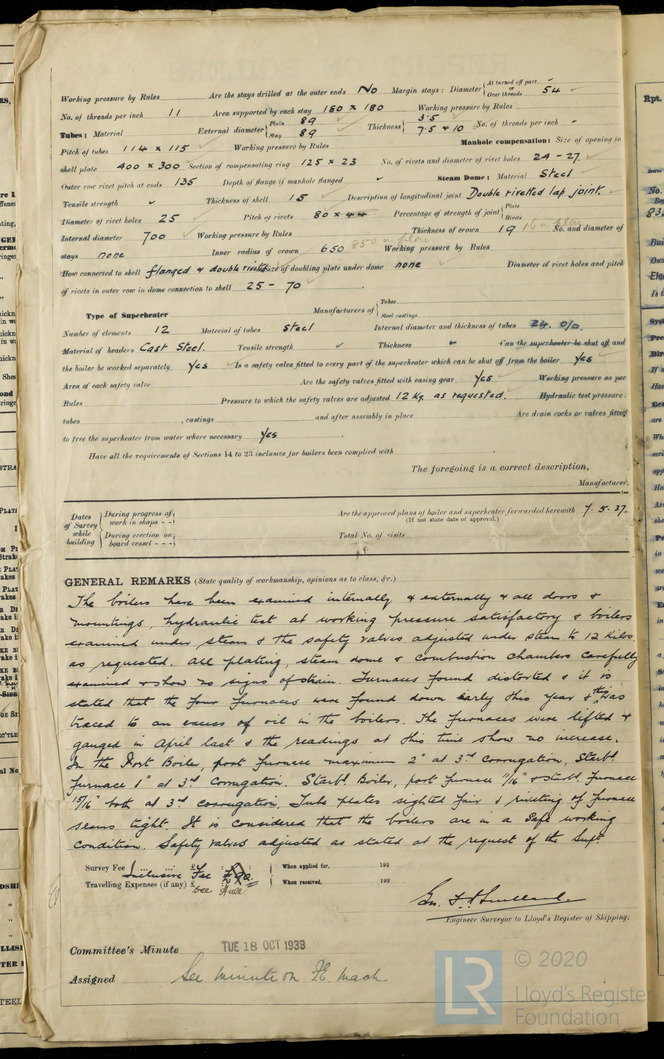 Working pressure by Rules Are the stays drilled at the outer ends No Margin stays: Diameter { At turned off part, or Over threads 54
No. of threads per inch 11 Area supported by each stay 180 x 180 Working pressure by Rules
Tubes: Material External diameter { Plain 89 Stay 89 Thickness { 3.5 7.5 & 10 No. of threads per inch
Pitch of tubes 114 x 115 Working pressure by Rules Manhole compensation: Size of opening in
shell plate 400 x 300 Section of compensating ring 125 x 23 No. of rivets and diameter of rivet holes 24 - 27
Outer row rivet pitch at ends 135 Depth of flange if manhole flanged Steam Dome: Material Steel
Tensile strength Thickness of shell 15 Description of longitudinal joint Double rivetted lap joint.
Diameter of rivet holes 25 Pitch of rivets 80 x 44 Percentage of strength of joint { Plate Rivets
Internal diameter 700 Working pressure by Rules Thickness of crown 19 No. and diameter of
stays none Inner radius of crown 650 Working pressure by Rules
How connected to shell flanged & double rivetted Size of doubling plate under dome none Diameter of rivet holes and pitch
of rivets in outer row in dome connection to shell 25 - 70
Type of Superheater Manufacturers of { Tubes Steel castings
Number of elements 12 Material of tubes Steel Internal diameter and thickness of tubes 24. O/D.
Material of headers Cast Steel. Tensile strength Thickness Can the superheater be shut off and
the boiler be worked separately Yes Is a safety valve fitted to every part of the superheater which can be shut off from the boiler Yes
Area of each safety valve Are the safety valves fitted with easing gear Yes Working pressure as per
Rules Pressure to which the safety valves are adjusted 12 Kg. as requested. Hydraulic test pressure:
tubes , castings and after assembly in place Are drain cocks or valves fitted
to free the superheater from water where necessary Yes
Have all the requirements of Sections 14 to 23 inclusive for boilers been complied with
The foregoing is a correct description,
Manufacturer.
Dates of Survey while building { During progress of work in shops - - During erection on board vessel - - - Are the approved plans of boiler and superheater forwarded herewith 7.5.37.
(If not state date of approval.)
Total No. of visits
GENERAL REMARKS (State quality of workmanship, opinions as to class, &c.)
The boilers have been examined internally & externally & all doors &
mountings, hydraulic test at working pressure satisfactory & boilers
examined under steam & the safety valves adjusted under steam to 12 kilos
as requested. All plating, steam dome & combustion chambers carefully
examined & show no signs of strain. Furnaces found distorted & it is
stated that the four furnaces were found down early this year & this was
traced to an excess of oil in the boilers. The furnaces were lifted &
gauged in April last & the readings at this time show no increase.
In the Port Boiler, port furnace maximum 2" at 3rd corrugation, Starbd
furnace 1" at 3rd Corrugation. Starbd Boiler, port furnace 11/16" & starbd. furnace
15/16" both at 3rd corrugation. Tube plates sighted fair & rivetting of furnace
seams tight. It is considered that the boilers are in a safe working
condition. Safety valves adjusted as stated at the request of the Supt.
Survey Fee ... ... £ Inclusive Fee When applied for, 192
Travelling Expenses (if any) £ When received, 192
Engineer Surveyor to Lloyd's Register of Shipping.
Committee's Minute TUE 18 OCT 1938
Assigned See minute on F.E. Mach
LR © 2020
Lloyd's Register
Foundation